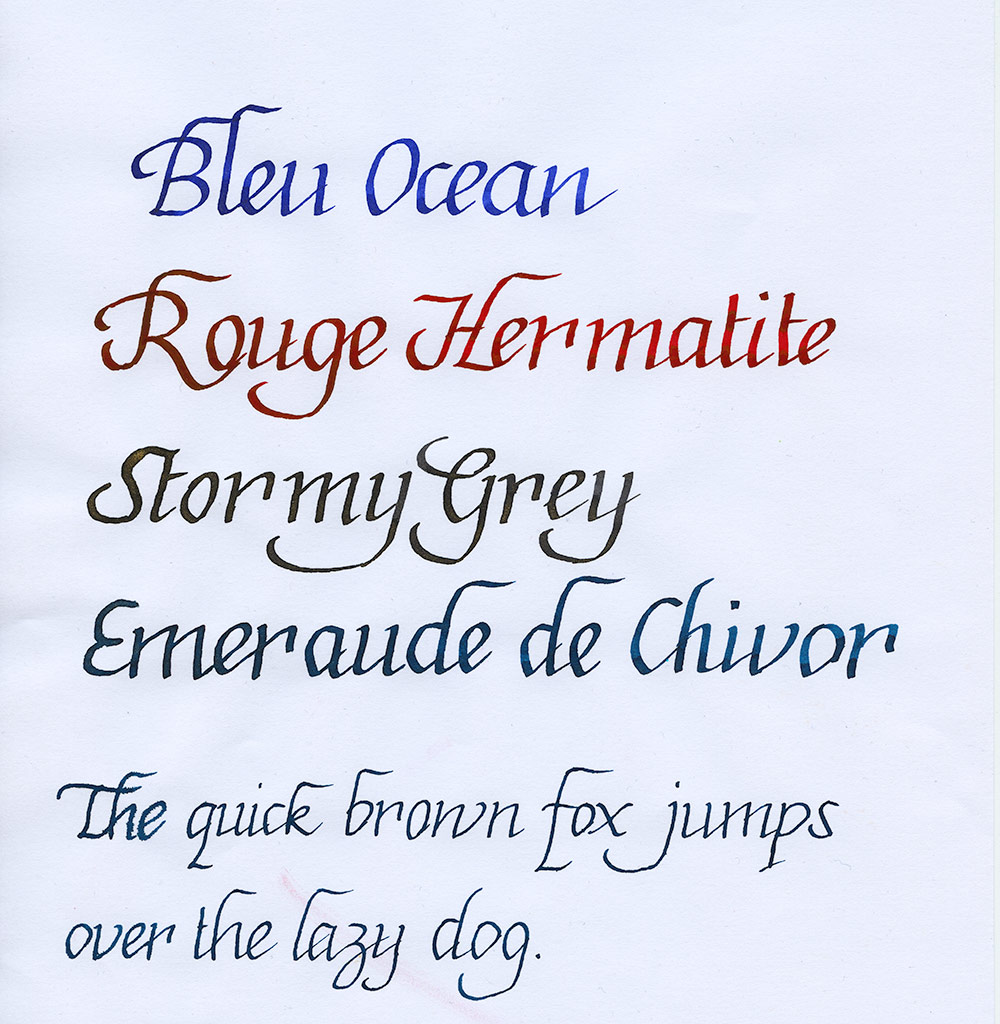 Bleu Ocean
Rouge Hermatite
Stormy Grey
Emeraude de Chivor
The quick brown fox jumps
over the lazy dog.